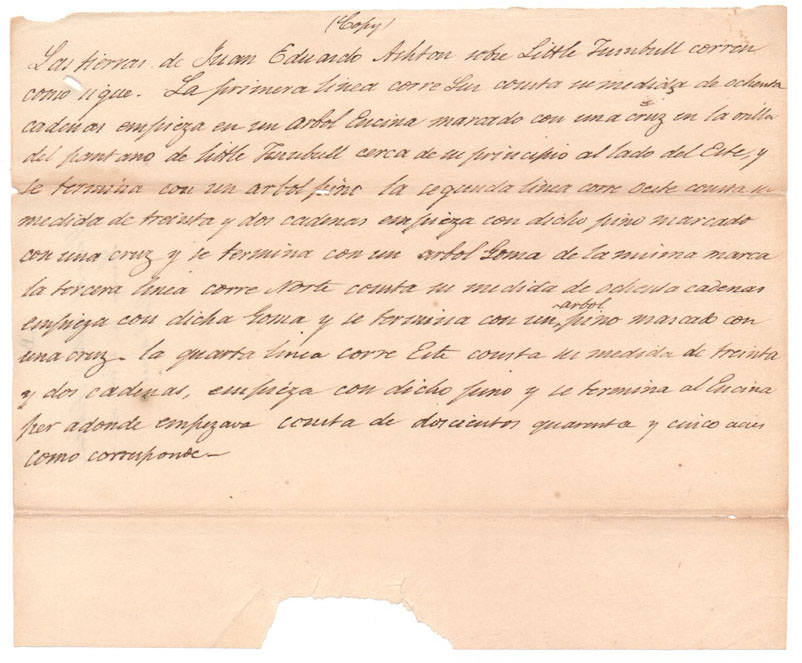 (Copy)
Las tierras de Juan Eduardo Ashton sobre Little Turnbull corren
como sigue. La primera linea corre Sur consta su medida de ochenta
cadenas empieza en un arbol Encina marcado con una cruz en la orilla
del pantano de little Turnbull cerca de su principio al lado del Este, y
se termina con un arbol pino la segunda linea corre oeste consta su
medida de treinta y dos cadenas empieza con dicho pino marcado
con una cruz y se termina con un arbol Goma de la misma marca
la tercera linea corre Norte consta su medida de ochenta cadenas
empieza con dicha Goma y se termina con un arbol pino marcado con
una cruz. la quarta linea corre Este consta su medida de treinta
y dos cadenas, empieza con dicho pino y se termina al Encina
per adonde empezava consta de doscientos quarenta y cinco
como corresponde